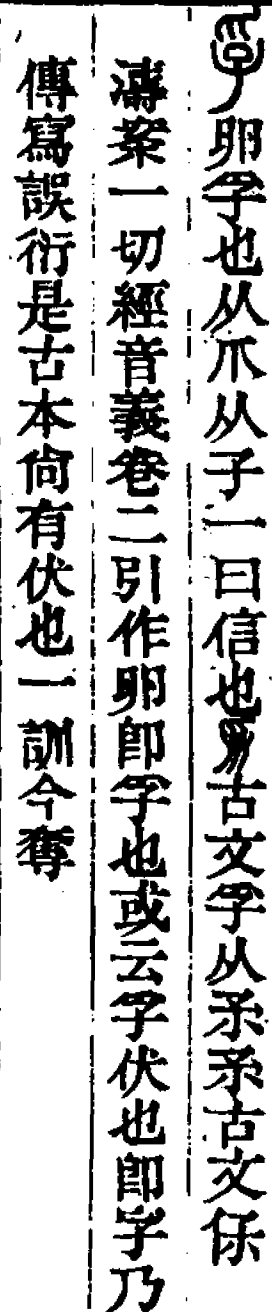 孚卵孚也从爪从子一曰信也𤔍古文孚从𣎼𣎼古文保
濤案一切經音義卷二引作卵卽孚也或云孚伏也卽字乃
傳寫誤衍是古本尙有伏也一訓今奪